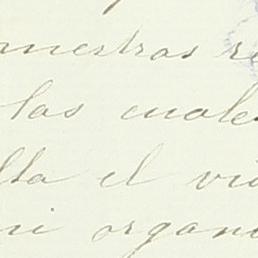 nuestras re
las cuales
lla el vi
ni organi